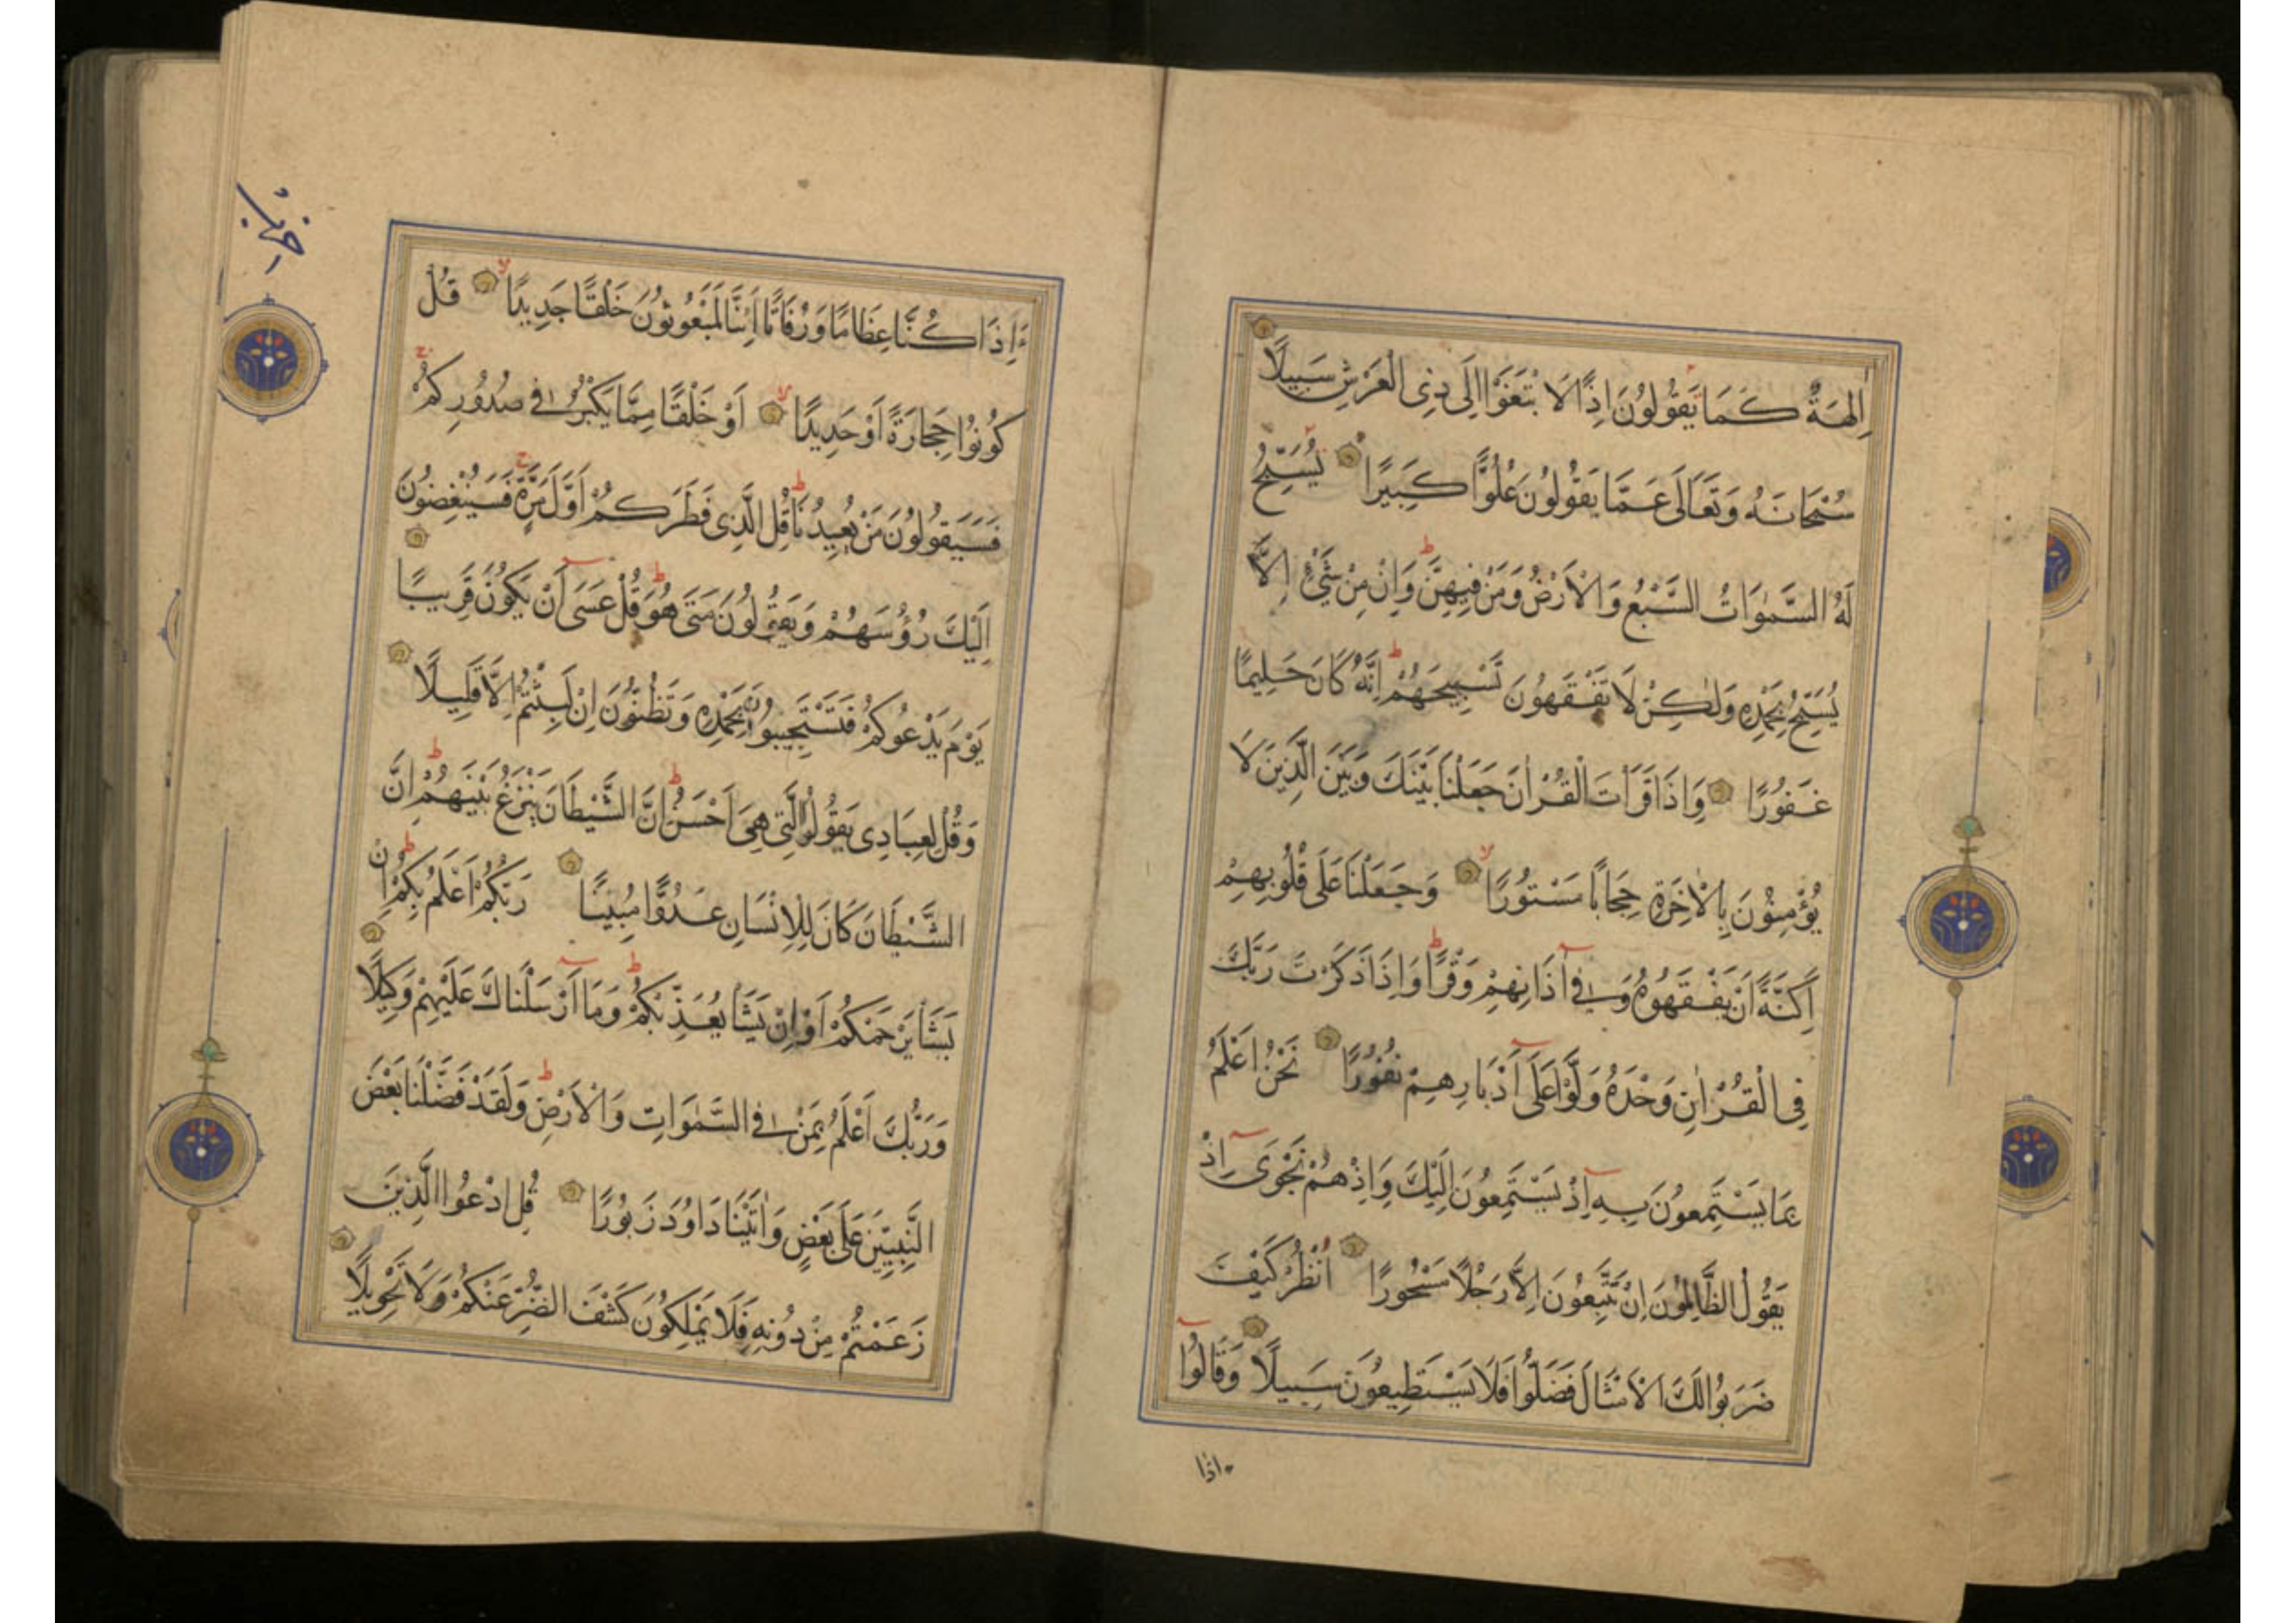 اٰلِهَةٌ كَمَا يَقُولُونَ اِذًا لَابْتَغَوْا اِلَى ذِي الْعَرْشِ سَبِيلًا
سُبْحَانَهُ وَتَعَالَى عَمَّا يَقُولُونَ عُلُوًّا كَبِيرًا يُسَبِّحُ
لَهُ السَّمٰوَاتُ السَّبْعُ وَالْاَرْضُ وَمَنْ فِيهِنَّ وَاِنْ مِنْ شَيْءٍ اِلَّا
يُسَبِّحُ بِحَمْدِهِ وَلٰكِنْ لَا تَفْقَهُونَ تَسْبِيحَهُمْ اِنَّهُ كَانَ حَلِيمًا
غَفُورًا وَاِذَا قَرَاْتَ الْقُرْاٰنَ جَعَلْنَا بَيْنَكَ وَبَيْنَ الَّذِينَ لَا
يُؤْمِنُونَ بِالْاٰخِرَةِ حِجَابًا مَسْتُورًا وَجَعَلْنَا عَلَى قُلُوبِهِمْ
اَكِنَّةً اَنْ يَفْقَهُوهُ وَفِي آذَانِهِمْ وَقْرًا وَاِذَا ذَكَرْتَ رَبَّكَ
فِي الْقُرْاٰنِ وَحْدَهُ وَلَّوْا عَلَى اَدْبَارِهِمْ نُفُورًا نَحْنُ اَعْلَمُ
بِمَا يَسْتَمِعُونَ بِهِ اِذْ يَسْتَمِعُونَ اِلَيْكَ وَاِذْ هُمْ نَجْوَى اِذْ
يَقُولُ الظَّالِمُونَ اِنْ تَتَّبِعُونَ اِلَّا رَجُلًا مَسْحُورًا اُنْظُرْ كَيْفَ
ضَرَبُوا لَكَ الْاَمْثَالَ فَضَلُّوا فَلَا يَسْتَطِيعُونَ سَبِيلًا وَقَالُوا
ءاذا
ءَاِذَا كُنَّا عِظَامًا وَرُفَاتًا اَئِنَّا لَمَبْعُوثُونَ خَلْقًا جَدِيدًا قُلْ
كُونُوا حِجَارَةً اَوْ حَدِيدًا اَوْ خَلْقًا مِمَّا يَكْبُرُ فِي صُدُورِكُمْ
فَسَيَقُولُونَ مَنْ يُعِيدُنَا قُلِ الَّذِي فَطَرَكُمْ اَوَّلَ مَرَّةٍ فَسَيُنْغِضُونَ
اِلَيْكَ رُؤُسَهُمْ وَيَقُولُونَ مَتَى هُوَ قُلْ عَسَى اَنْ يَكُونَ قَرِيبًا
يَوْمَ يَدْعُوكُمْ فَتَسْتَجِيبُونَ بِحَمْدِهِ وَتَظُنُّونَ اِنْ لَبِثْتُمْ اِلَّا قَلِيلًا
وَقُلْ لِعِبَادِي يَقُولُوا الَّتِي هِيَ اَحْسَنُ اِنَّ الشَّيْطَانَ يَنْزَغُ بَيْنَهُمْ اِنَّ
الشَّيْطَانَ كَانَ لِلْاِنْسَانِ عَدُوًّا مُبِينًا رَبُّكُمْ اَعْلَمُ بِكُمْ اِنْ
يَشَاْ يَرْحَمْكُمْ اَوْ اِنْ يَشَاْ يُعَذِّبْكُمْ وَمَا اَرْسَلْنَاكَ عَلَيْهِمْ وَكِيلًا
وَرَبُّكَ اَعْلَمُ بِمَنْ فِي السَّمٰوَاتِ وَالْاَرْضِ وَلَقَدْ فَضَّلْنَا بَعْضَ
النَّبِيِّينَ عَلَى بَعْضٍ وَاٰتَيْنَا دَاوُدَ زَبُورًا قُلِ ادْعُوا الَّذِينَ
زَعَمْتُمْ مِنْ دُونِهِ فَلَا يَمْلِكُونَ كَشْفَ الضُّرِّ عَنْكُمْ وَلَا تَحْوِيلًا